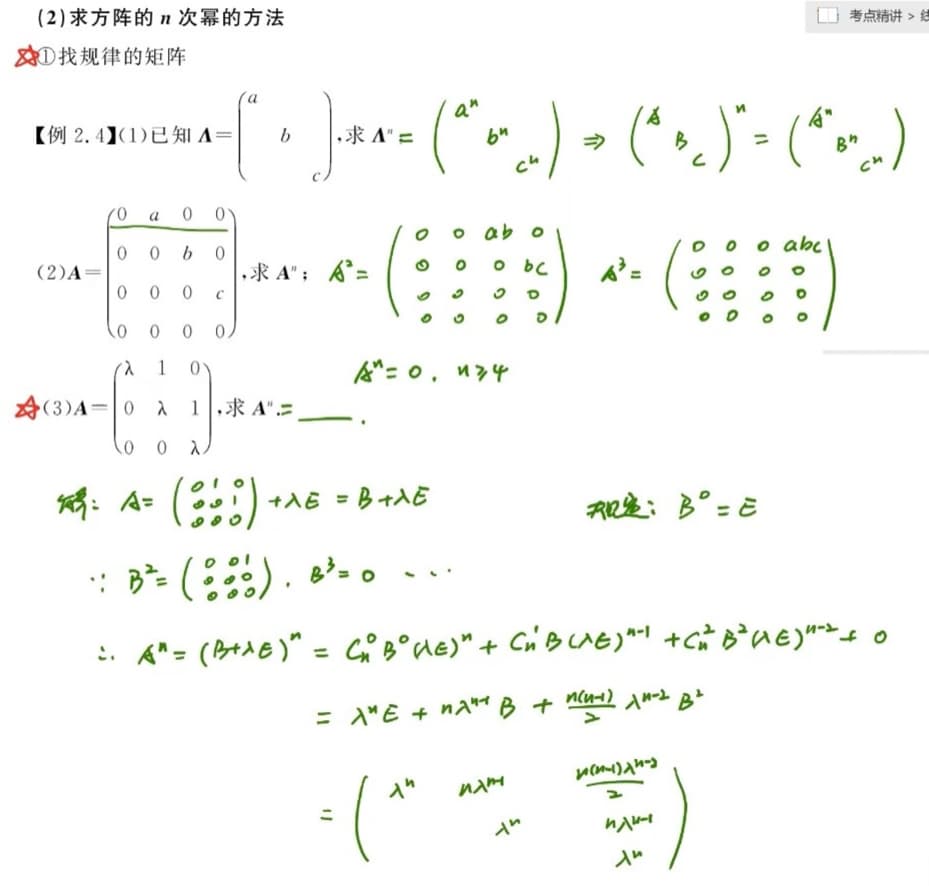 (2)求方阵的 n 次幂的方法
考点精讲 >
☆①找规律的矩阵
【例 2.4】(1)已知 Λ=(a b c),求 Λⁿ = (aⁿ bⁿ cⁿ) ⇒ (A B C)ⁿ = (Aⁿ Bⁿ Cⁿ)
(2)A=(0 a 0 0
0 0 b 0
0 0 0 c
0 0 0 0),求 Aⁿ; A²=(0 0 ab 0
0 0 0 bc
0 0 0 0
0 0 0 0) A³=(0 0 0 abc
0 0 0 0
0 0 0 0
0 0 0 0)
Aⁿ=0, n≥4
☆(3)A=(λ 1 0
0 λ 1
0 0 λ),求 Aⁿ.=____.
解: A=(0 1 0
0 0 1
0 0 0)+λE=B+λE 规定: B⁰=E
∵ B²=(0 0 1
0 0 0
0 0 0), B³=0 ...
∴ Aⁿ=(B+λE)ⁿ=Cₙ⁰B⁰(λE)ⁿ+Cₙ¹B(λE)ⁿ⁻¹+Cₙ²B²(λE)ⁿ⁻²+0
=λⁿE+nλⁿ⁻¹B+n(n-1)/2 λⁿ⁻²B²
=(λⁿ nλⁿ⁻¹ n(n-1)λⁿ⁻²/2
λⁿ nλⁿ⁻¹
λⁿ)